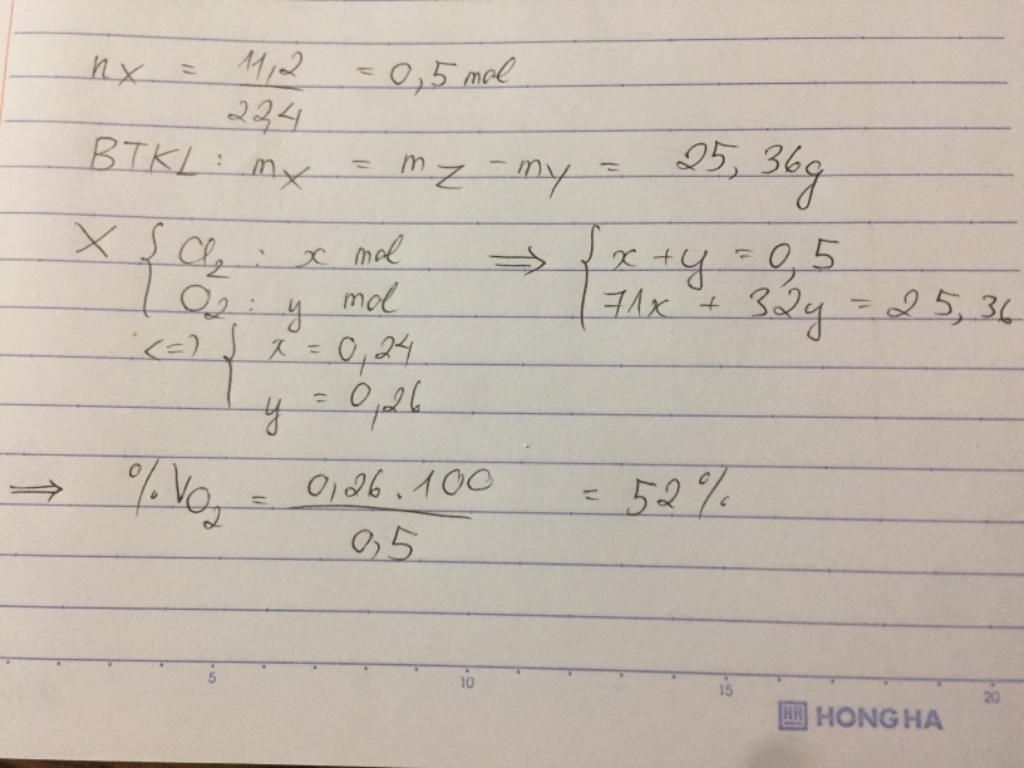 nX = 11,2 / 22,4 = 0,5 mol
BTKL: mX = mZ - mY = 25,36g
X { Cl2 : x mol ⟹ { x + y = 0,5
O2 : y mol 71x + 32y = 25,36
<=> { x = 0,24
y = 0,26
⟹ %VO2 = 0,26.100 / 0,5 = 52%
5 10 15 20
HH HONG HA